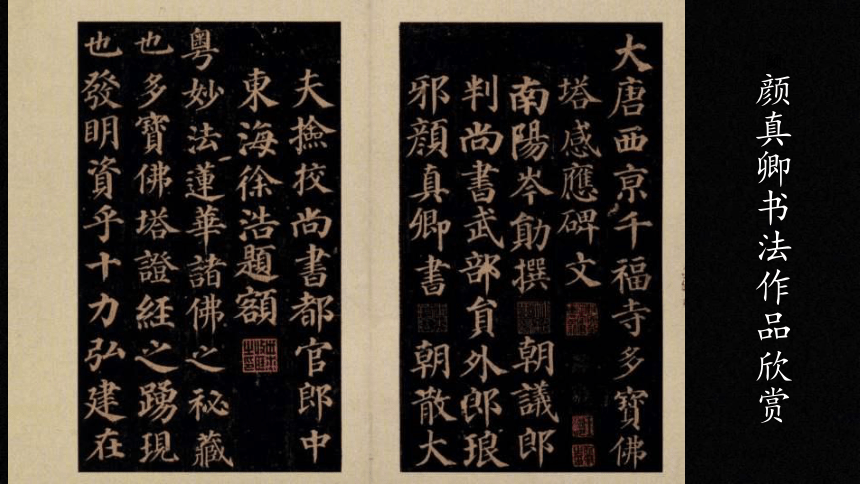 颜真卿书法作品欣赏
大唐西京千福寺多寶佛
塔感應碑文
南陽岑勛撰 朝議郎
判尚書武部員外郎琅
邪顏真卿書 朝散大
夫撿挍尚書都官郎中
東海徐浩題額
粤妙法蓮華諸佛之秘藏
也多寶佛塔證経之踴現
也發明資乎十力弘建在